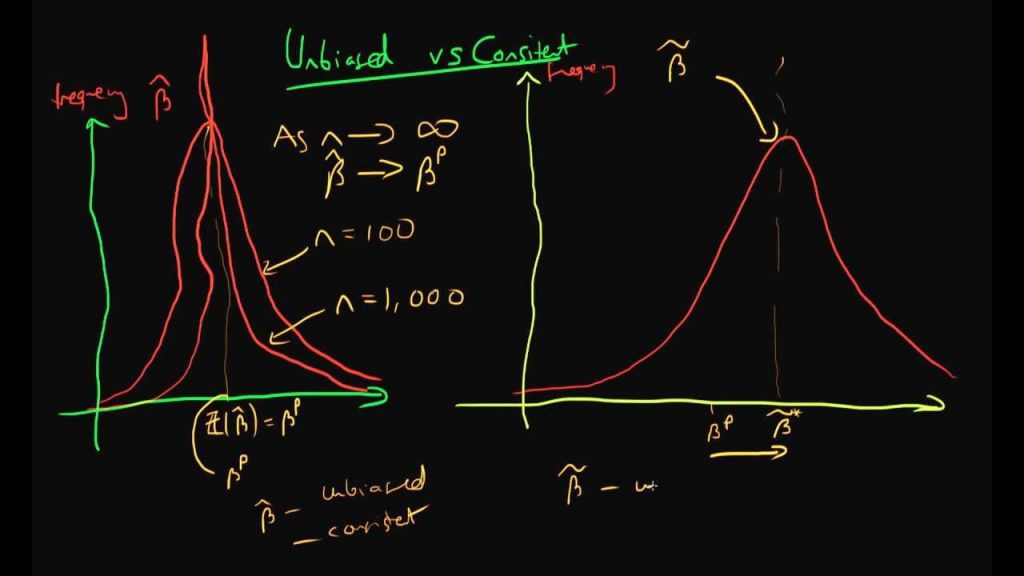 Unbiased vs Consitent
frequency β̂
As n → ∞
β̂ → βᵖ
n = 100
n = 1,000
E(β̂) = βᵖ
βᵖ
β̂ - unbiased
frequency β̃
βᵖ β̃*
β̃ -